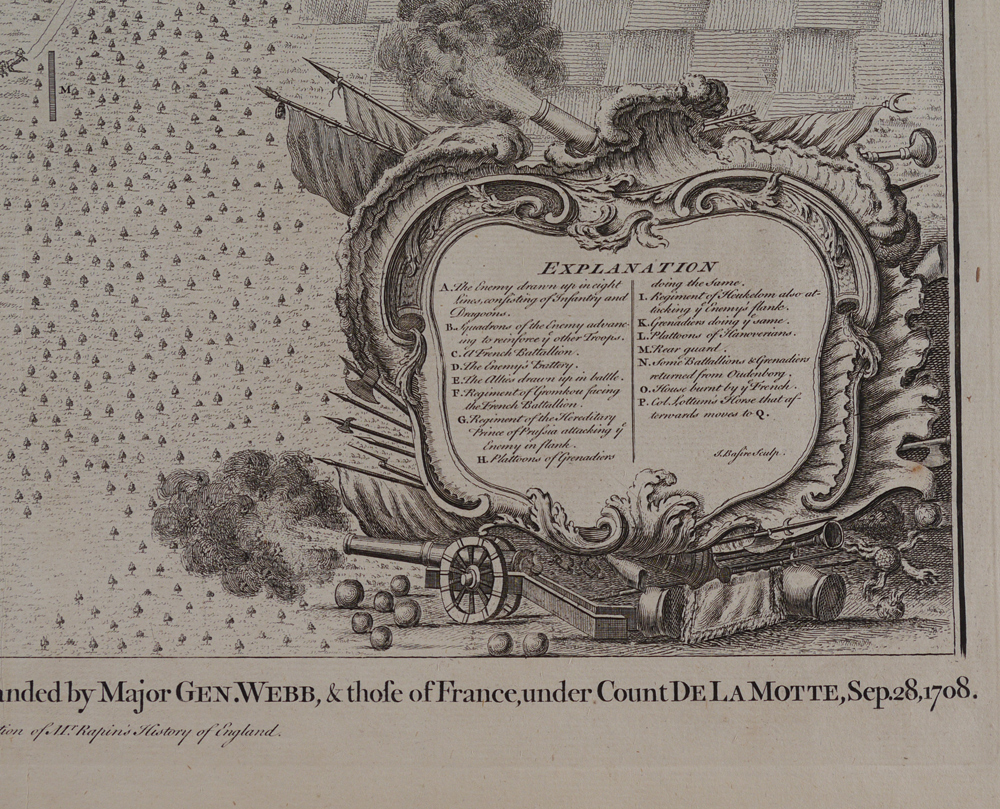 M
EXPLANATION
A. The Enemy drawn up in eight
Lines, consisting of Infantry and
Dragoons.
B. Squadrons of the Enemy advanc-
ing to reinforce yͤ other Troops.
C. A French Battallion.
D. The Enemy's Battery.
E. The Allies drawn up in battle.
F. Regiment of Gronkou facing
the French Battallion.
G. Regiment of the Hereditary
Prince of Pruſsia attacking yͤ
Enemy in flank.
H. Plattoons of Grenadiers
doing the Same.
I. Regiment of Heukelom also at-
tacking yͤ Enemy's flank.
K. Grenadiers doing yͤ same.
L. Plattoons of Hanoverians.
M. Rear guard.
N. Some Battallions & Grenadiers
returned from Oudenborg.
O. House burnt by yͤ French.
P. Col. Lottum's Horse that af-
terwards moves to Q.
J. Basire Sculp.
anded by Major GEN. WEBB, & thoſe of France, under Count DE LA MOTTE, Sep. 28, 1708.
tion of Mr. Rapin's History of England.